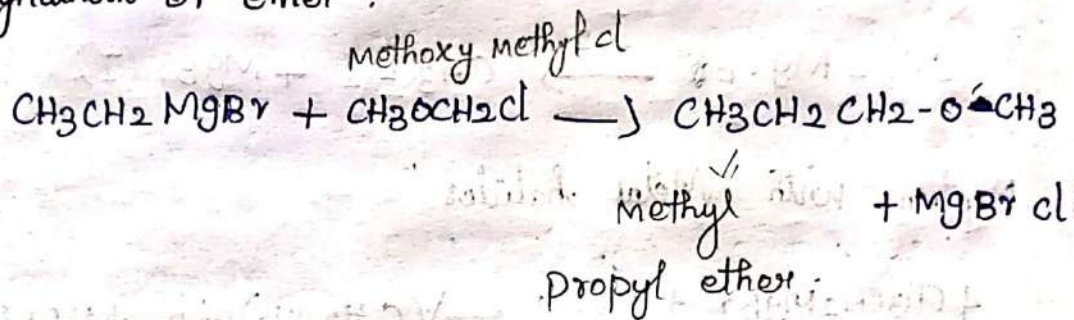 of ether.
Methoxy methyl cl
CH3CH2 MgBr + CH3OCH2Cl → CH3CH2 CH2-O-CH3
Methyl + MgBr cl
propyl ether.